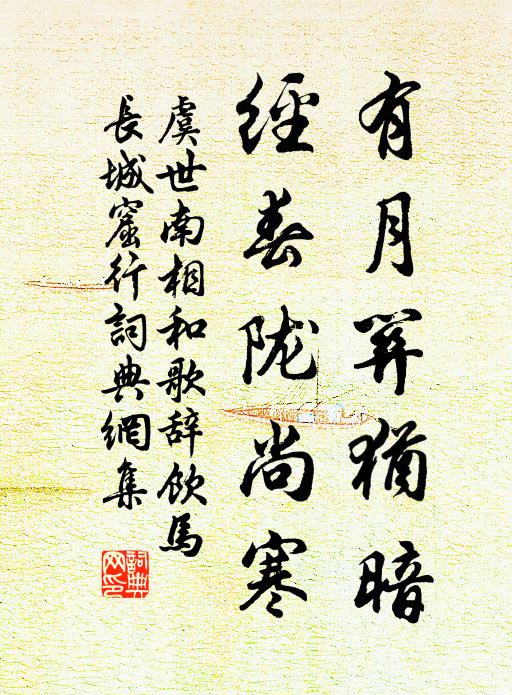 有月關猶暗
經春陇尚寒
虞世南相和歌辞飲馬
長城窟行詞典網集
詞典
网印